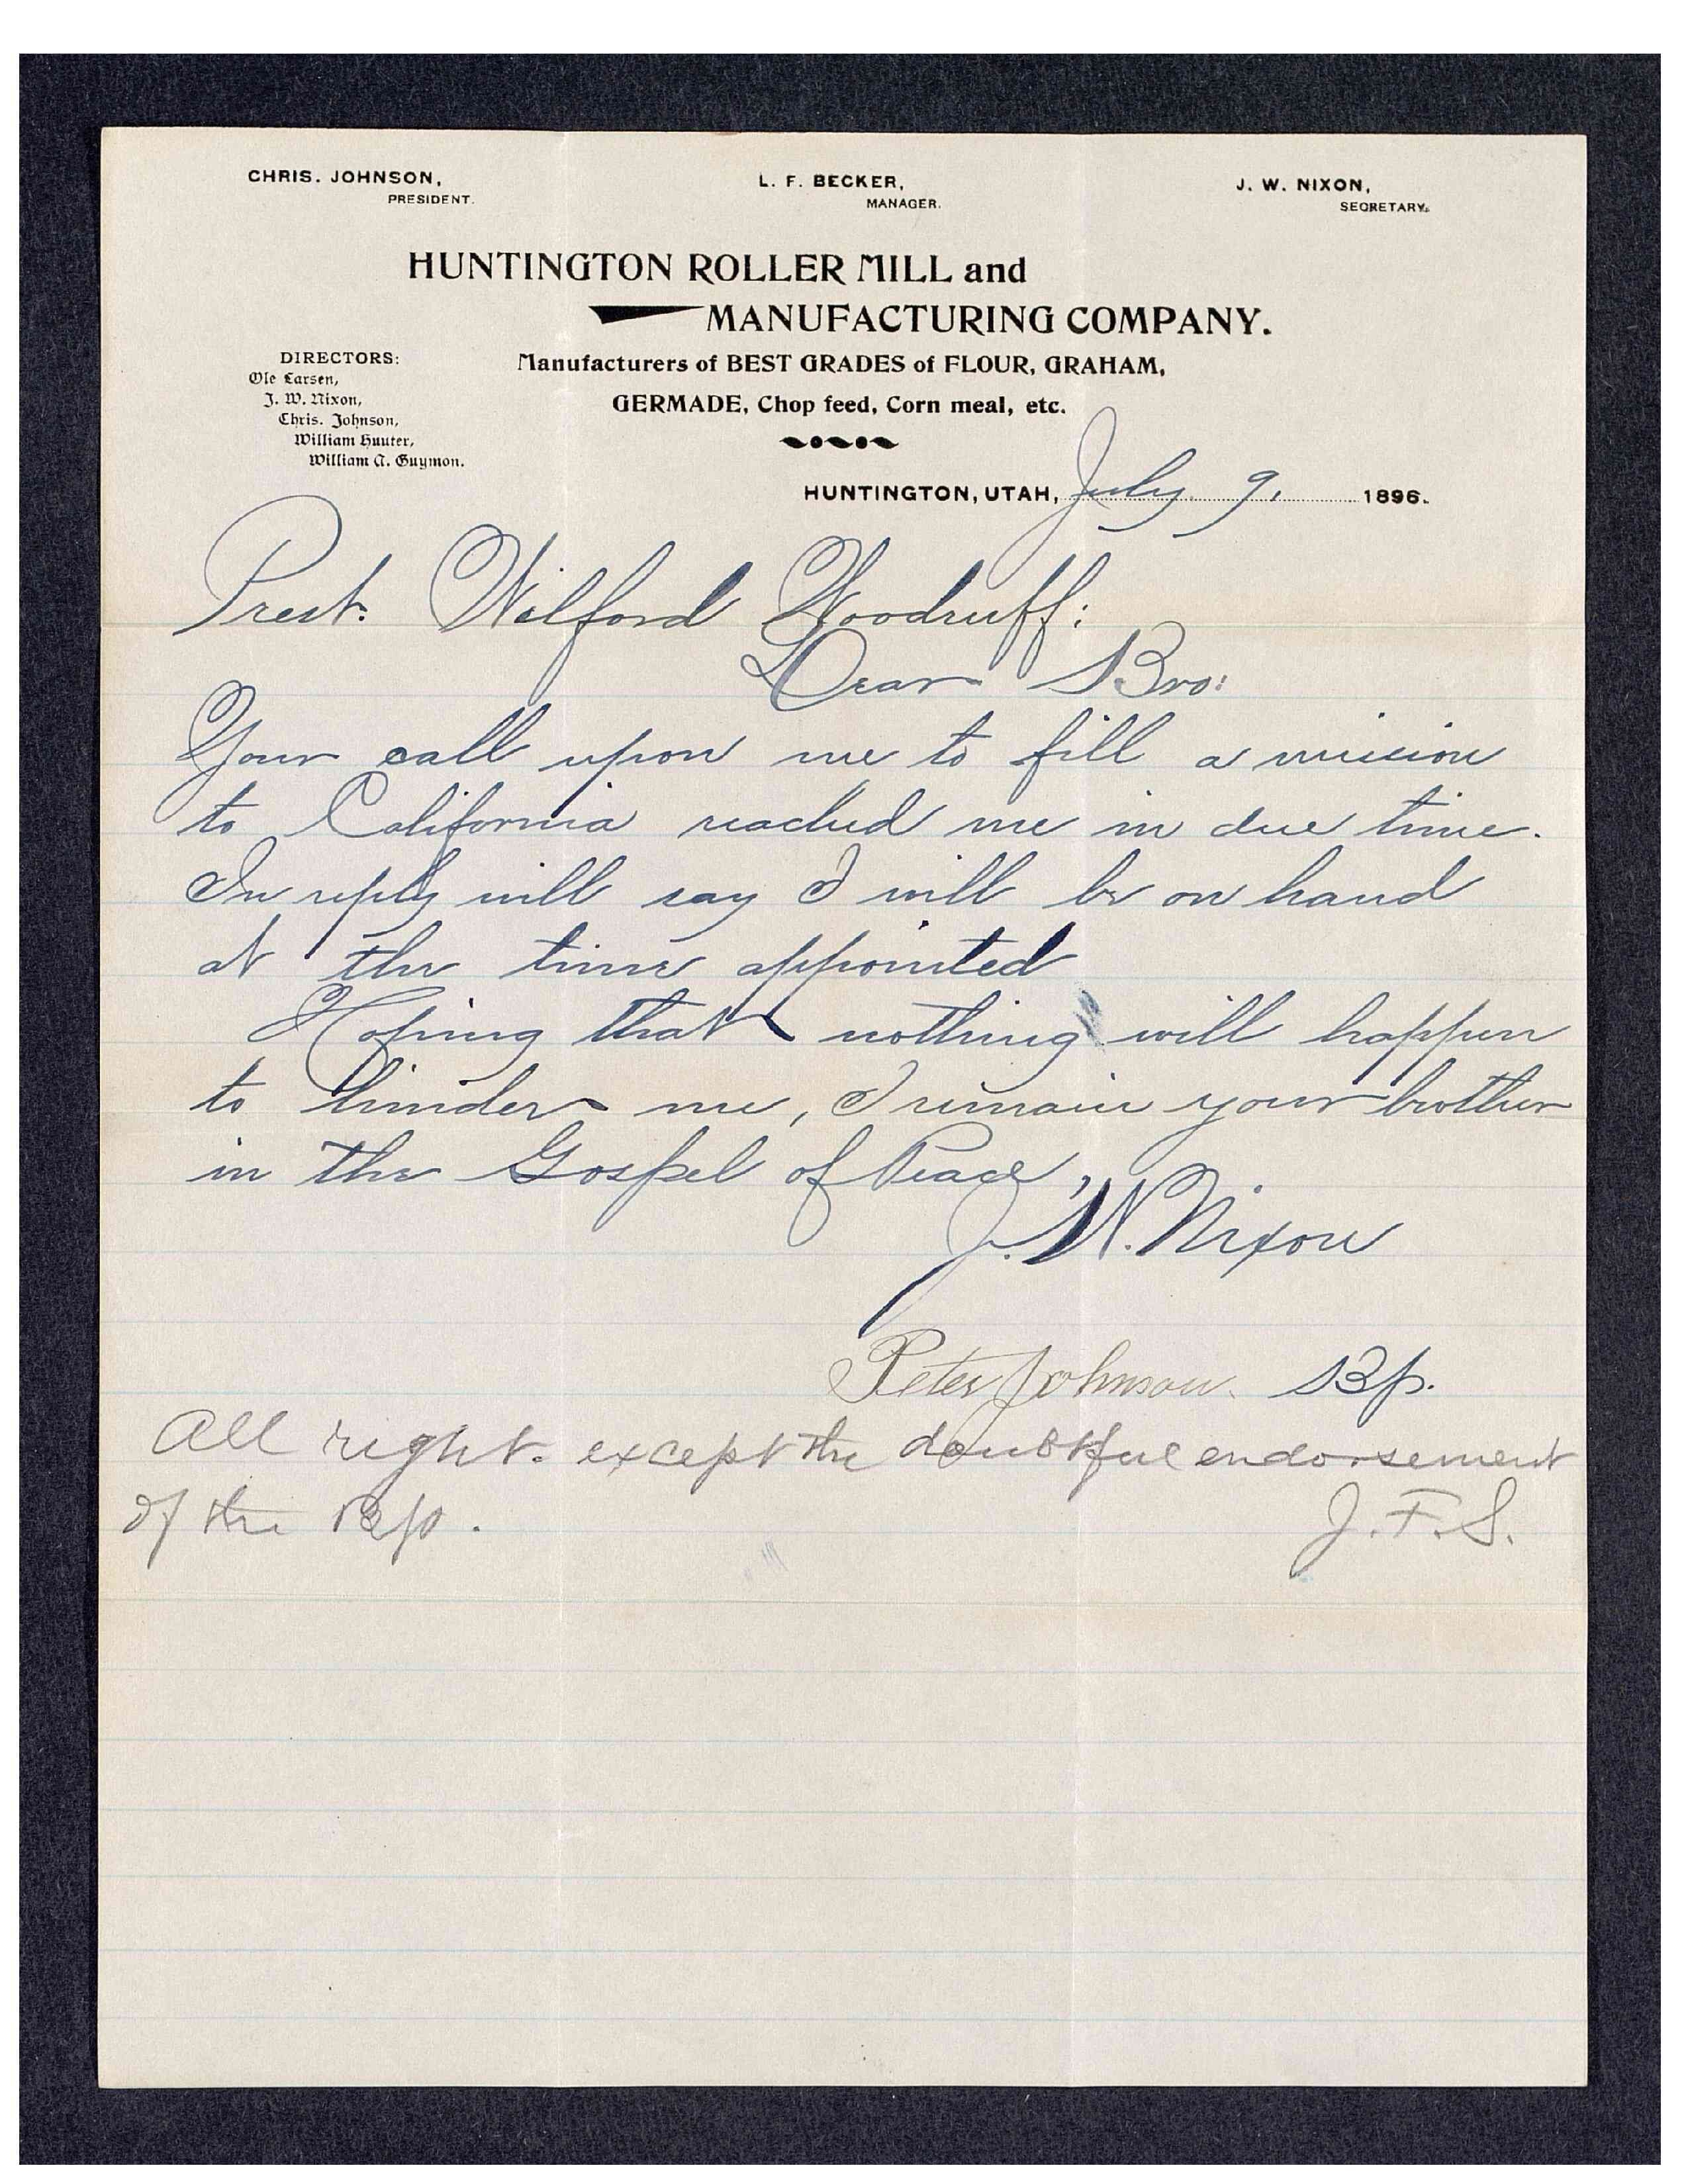 CHRIS. JOHNSON,
PRESIDENT.
L. F. BECKER,
MANAGER.
J. W. NIXON,
SECRETARY.
HUNTINGTON ROLLER MILL and
MANUFACTURING COMPANY.
Manufacturers of BEST GRADES of FLOUR, GRAHAM,
GERMADE, Chop feed, Corn meal, etc.
DIRECTORS:
Ole Larsen,
J. W. Nixon,
Chris. Johnson,
William Huuter,
William A. Guymon.
HUNTINGTON, UTAH, July 9, 1896.
Prest. Wilford Woodruff:
Dear Bro:
Your call upon me to fill a mission
to California reached me in due time.
In reply will say I will be on hand
at the time appointed
Hoping that nothing will happen
to hinder me, I remain your brother
in the Gospel of Peace,
J. W. Nixon
Peter Johnson. Bp.
All right. except the doubtful endorsement
of the Bp.
J. F. S.